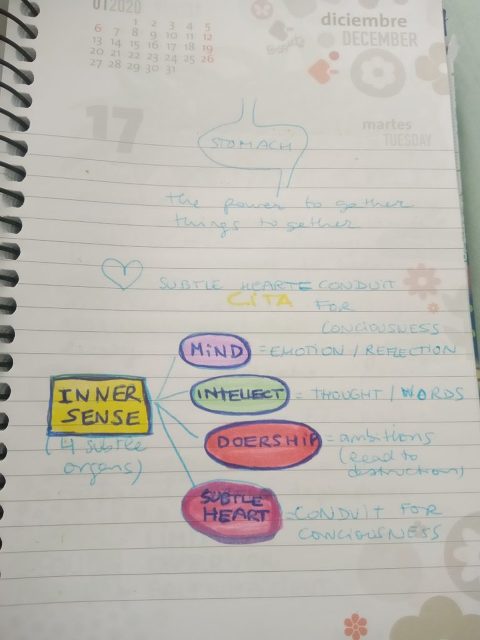 01 2020
1 2 3 4 5
6 7 8 9 10 11 12
13 14 15 16 17 18 19
20 21 22 23 24 25 26
27 28 29 30 31
diciembre
DECEMBER
17
martes
TUESDAY
STOMACH
the power to gather
things together
SUBTLE HEART = CONDUIT
CITA FOR
CONCIOUSNESS
MIND = EMOTION / REFLECTION
INNER SENSE
INTELLECT = THOUGHT / WORDS
(4 subtle organs)
DOERSHIP = ambitions
(lead to
destruction)
SUBTLE HEART = CONDUIT FOR
CONCIOUSNESS